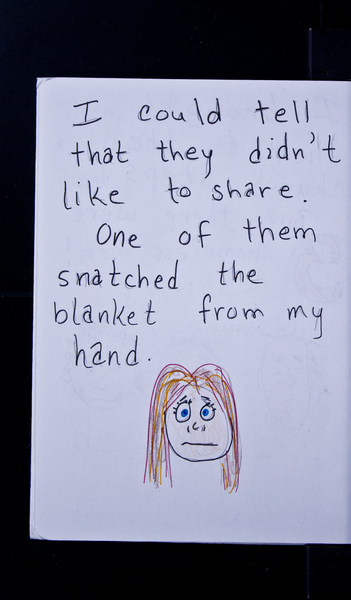 I could tell
that they didn't
like to share.
One of them
snatched the
blanket from my
hand.